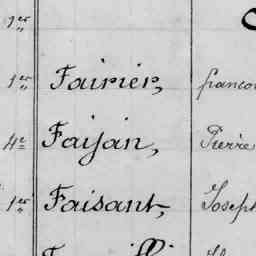 1er
1er Fairier, francoi
4e Faijan, Pierre
1er Faisant, Joseph